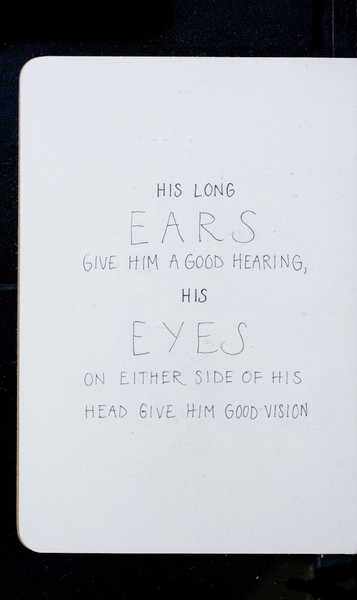 HIS LONG
EARS
GIVE HIM A GOOD HEARING,
HIS
EYES
ON EITHER SIDE OF HIS
HEAD GIVE HIM GOOD VISION